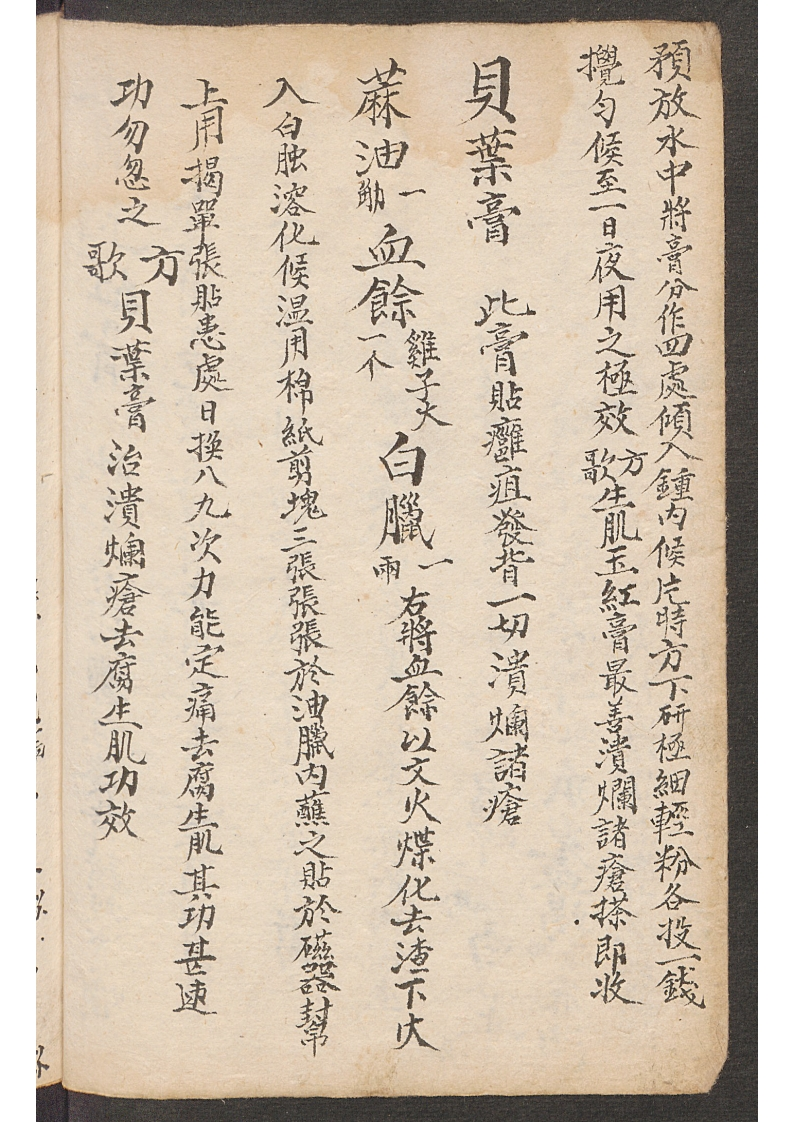 預放水中將膏分作四處傾入鍾內候片時方下研極細輕粉各投一錢
攪勻候至一日夜用之極效方歌生肌玉紅膏最善潰爛諸瘡搽即收
貝葉膏 此膏貼癰疽發背一切潰爛諸瘡
蔴油一觔血餘雞子大一个白臘一兩右將血餘以文火煠化去渣下火
入白蝕溶化候温用棉紙剪塊三張張張於油臘內蘸之貼於磁器幫
上用揭單張貼患處日換八九次力能定痛去腐生肌其功甚速
功勿忽之方歌貝葉膏治潰爛瘡去腐生肌功效